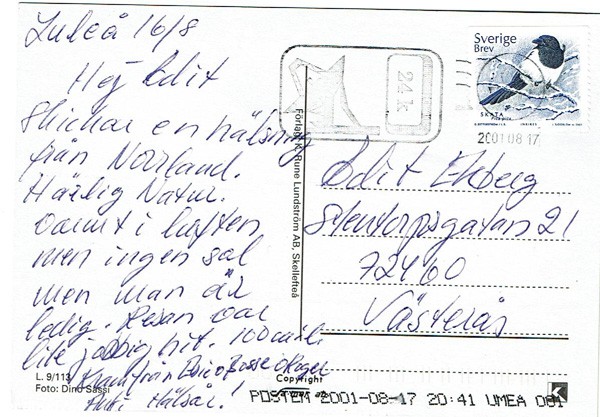 Luleå 16/8
Hej Edit
Skickar en hälsning
från Norrland.
Härlig Natur.
varmt i luften
men ingen sol
men man är
ledig. Resan var
lite jobbig hit. 100 mil
Kram från
Hälsar!
L. 9/113
Foto: Dino Sassi
Förlag: K. Rune Lundström AB, Skellefteå
Copyright
24k
Sverige
Brev
SKATA
Pica pica
2001 08 17
Edit Ekberg
Stentorpsgatan 21
72460
Västerås
K
POSTEN 2001-08-17 20:41 UMEA 001